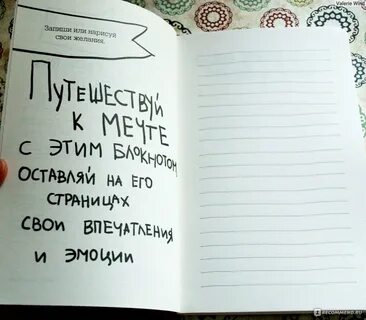 Valerie Wind
Запиши или нарисуй
свои желания.
Путешествуй
к мечте
с этим блокнотом
оставляй на его
страницах
свои впечатления
и эмоции
IRECOMMEND.RU